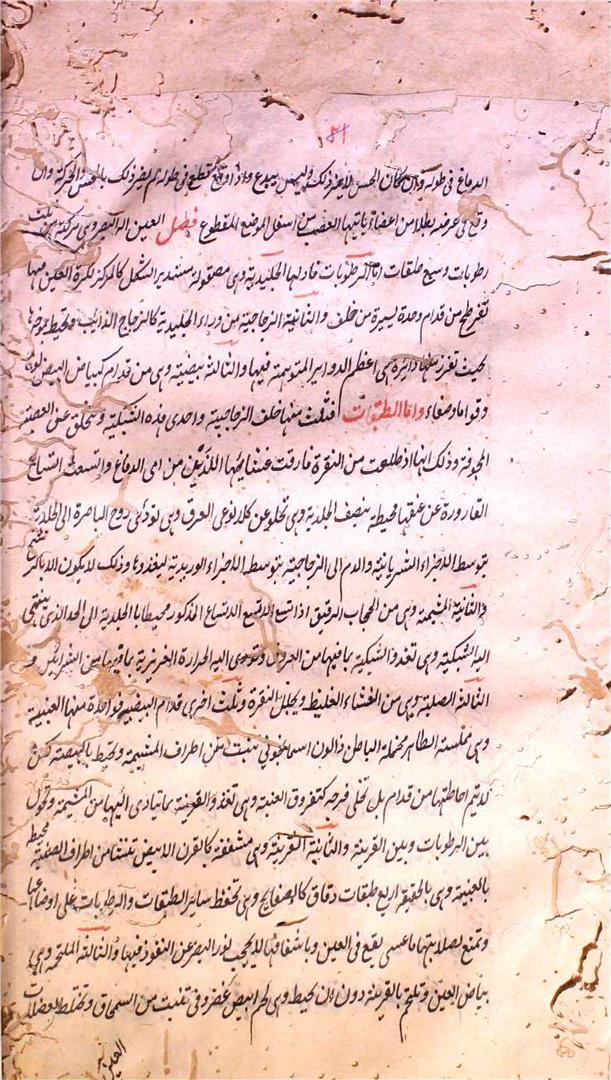 ١٨١
الدماغ فى طوله وان كان الحس لا يضر ذلك وليس ببدع واذا وقع القطع فى طوله لم يضر ذلك بالحس والحركة وان
وقع فى عرضه بطلا من اعضاء ياتيها العصب من اسفل الموضع المقطوع فصل العين آلة البصر وهى مركبة من ثلث
رطوبات وسبع طبقات اما الرطوبات فاولها الجليدية وهى مصقولة مستدير الشكل كالمركز لكرة العين فيها
تفرطح من قدام وحدة يسيرة من خلف والثانية الزجاجية من وراء الجليدية كالزجاج الذائب وتحيط بجرمها
بحيث تغرز منها دايرة هى اعظم الدواير المتوهمة فيها والثالثة بيضية وهى من قدام كبياض البيض لونا
وقواما وصفاء واما الطبقات فثلث منها خلف الزجاجية واحدى هذه الشبكية وتتخلق عن العصبة
المجوفة وذلك انها اذ طلعت من النقرة فارقت غشاييها اللذين من امى الدماغ واتسعت اتساع
القارورة عن عنقها محيطة بنصف الجلدية وهى تخلو عن كلا نوعى العرق وهى تودى روح الباصرة الى الجلدية
بتوسط الاجزاء الشريانية والدم الى الزجاجية بتوسط الاجزاء الوريدية ليغذوها وذلك لا يكون الا بالترشح
والثانية المشيمة وهى من الحجاب الرقيق اذا اتسع الاتساع المذكور محيطا بالجلدية الى الحد الذى ينتهى
اليه الشبكية وهى تغذو الشبكية بما فيها من العروق وتودى اليه الحرارة الغريزية بما فيها من الشرايين و
الثالثة الصلبة وهى من الغشاء الغليظ ويجلل النقرة وثلث اخرى قدام البيضية فواحدة منها العنبية
وهى مملسة الظاهر مخملة الباطن ذا لون اسمانجونى ينبت من اطراف المشيمة وتحيط بالبيضية لكن
لا يتم احاطتها من قدام بل تخلى فرجة كتفروق العنبة وهى تغذو القرنية بما يتادى اليها من المشيمة وتحول
بين الرطوبات وبين القرنية والثانية القرنية وهى مشففة كالقرن الابيض تنشا من اطراف الصلبة محيطة
بالعنبية وهى بالحقيقة اربع طبقات دقاق كالصفايح وهى تحفظ ساير الطبقات والرطوبات على اوضاعها
وتمنع لصلابتها ما عسى يقع فى العين وباشفافها لا يحجب نور البصر عن النفوذ فيها والثالثة الملتحمة وهى
بياض العين وتلتحم بالقرنية دون ان تحيط وهى لحم ابيض غضروفى تنبت من السمحاق وتختلط لعضلات
العين